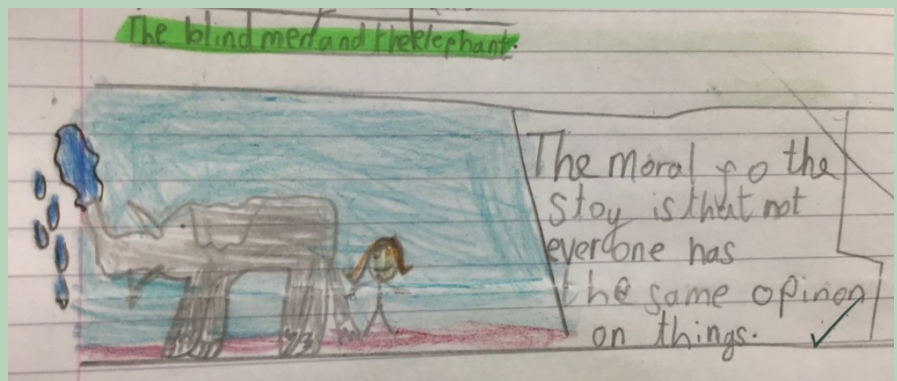 The blind men and the elephant.
The moral fo the
stoy is that not
everone has
the same opinon
on things.